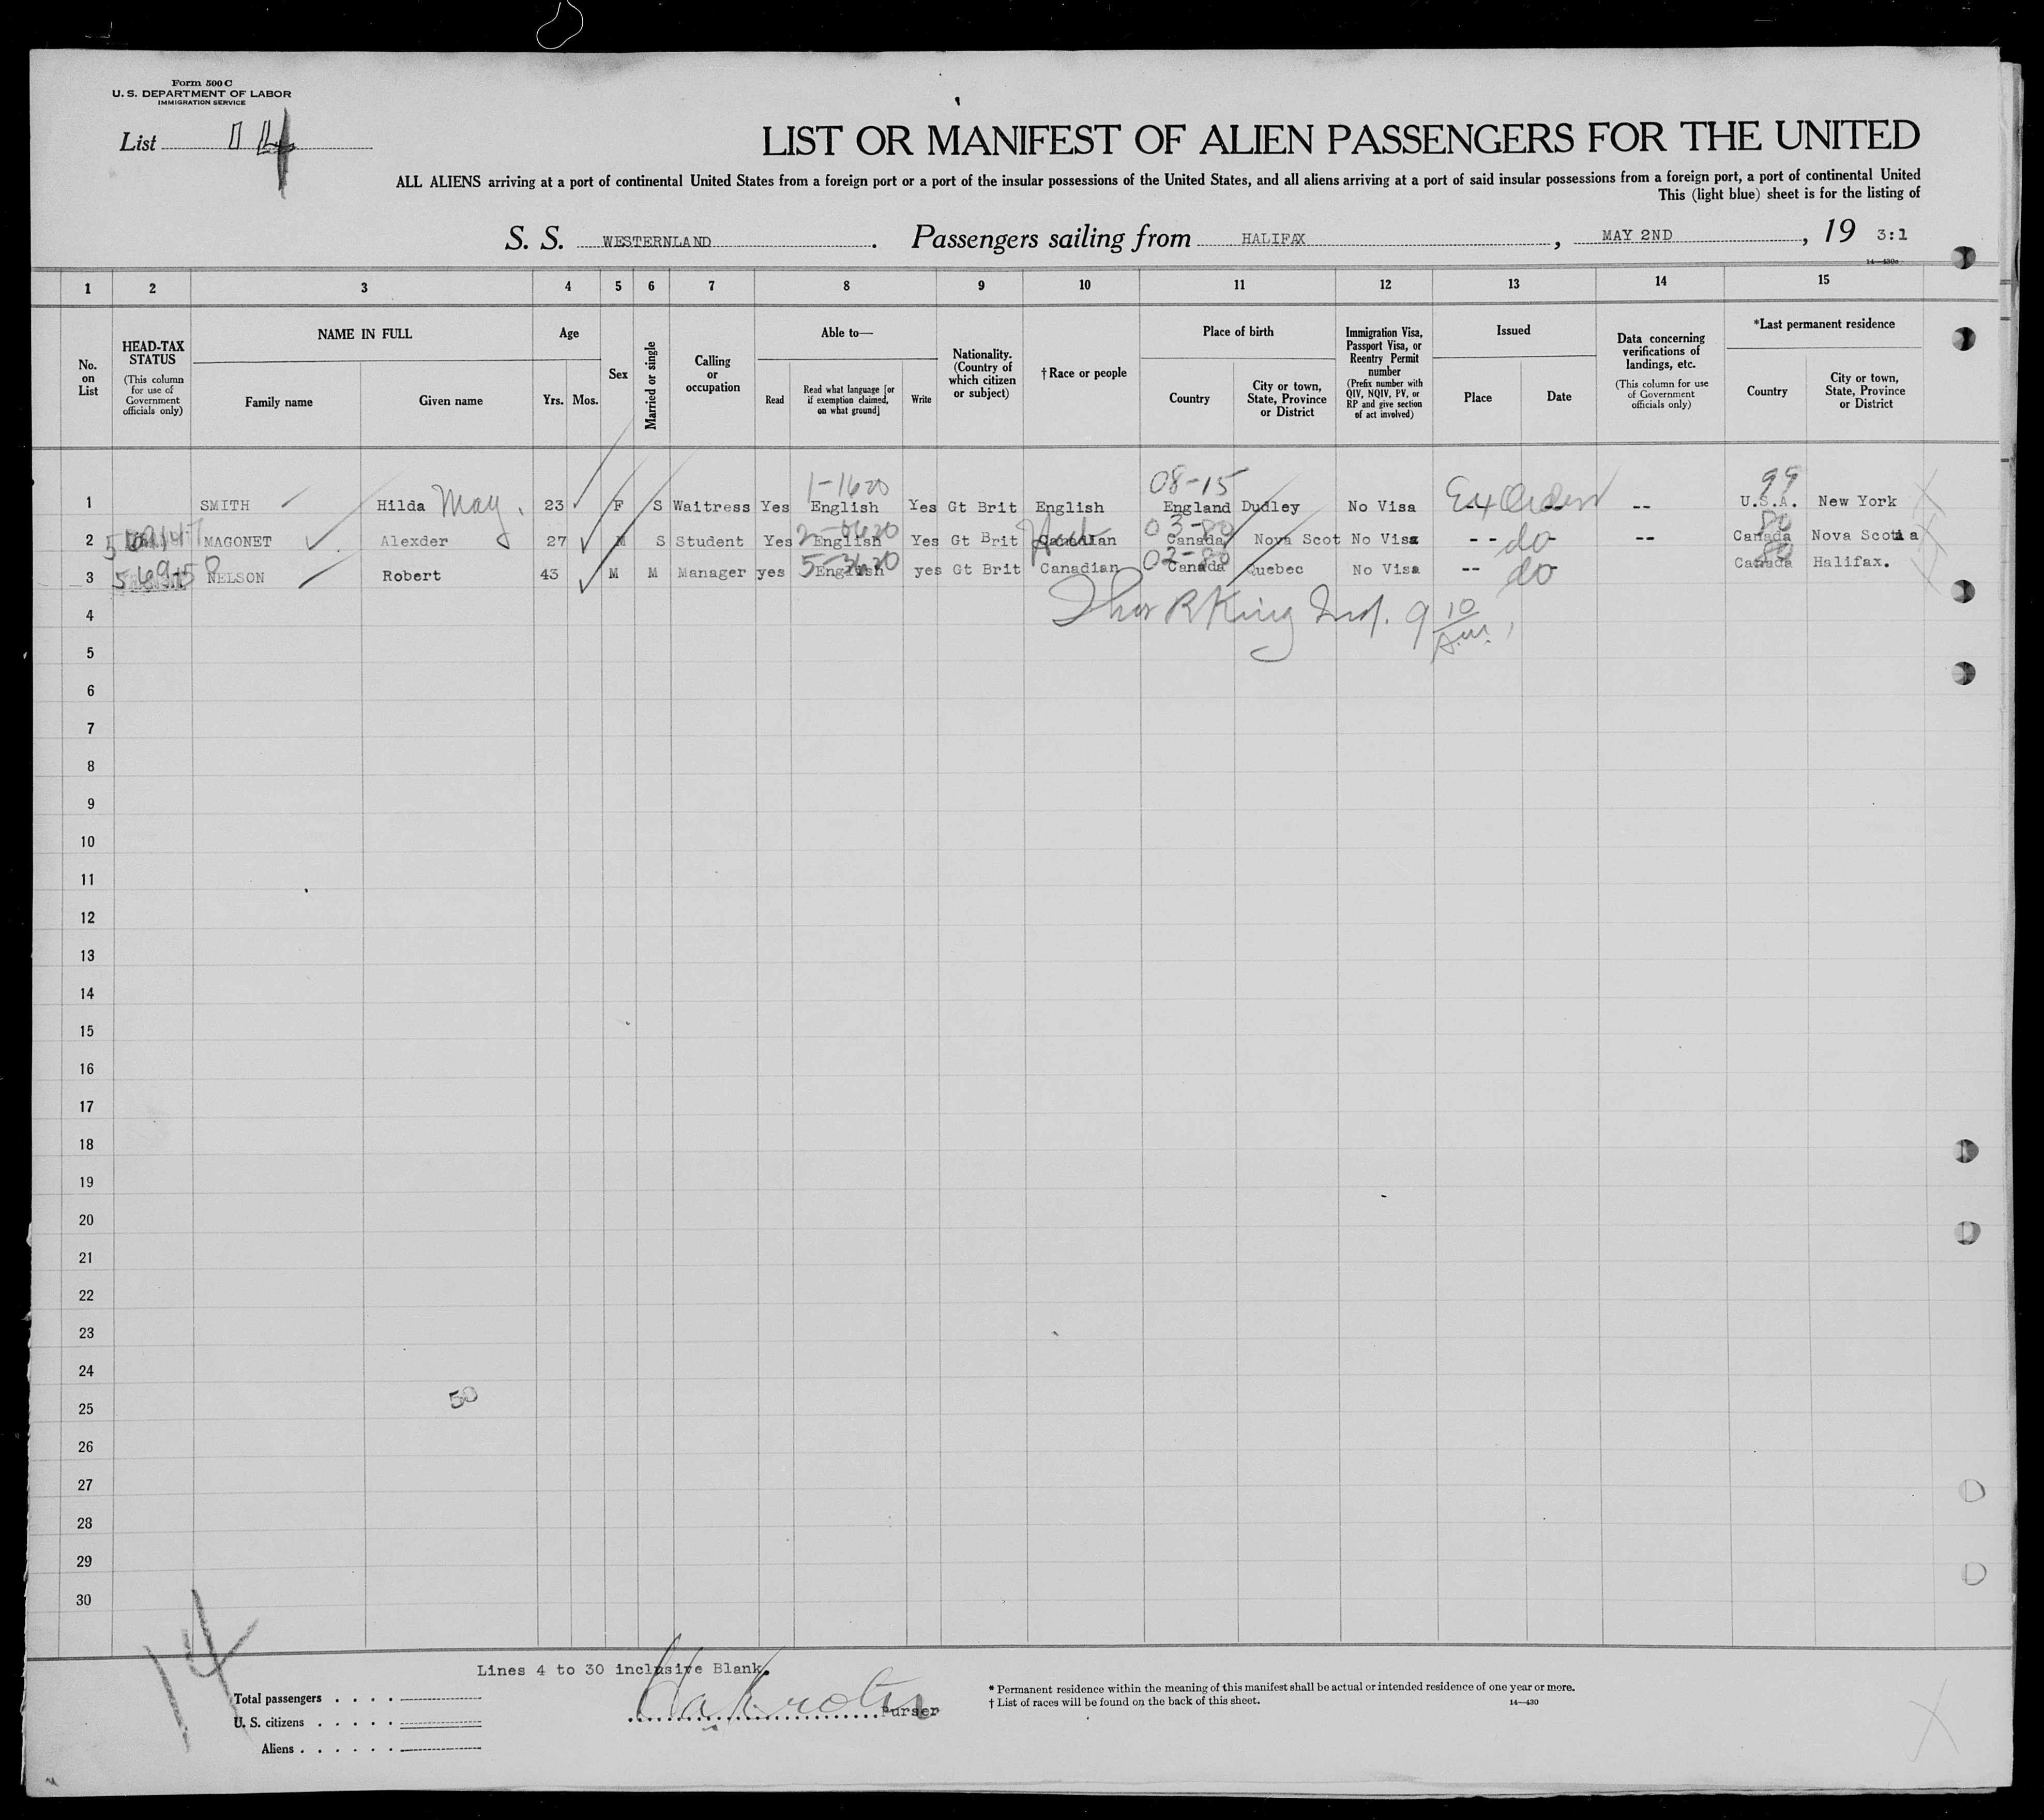 Form 500 C
U. S. DEPARTMENT OF LABOR
IMMIGRATION SERVICE
List 14
LIST OR MANIFEST OF ALIEN PASSENGERS FOR THE UNITED
ALL ALIENS arriving at a port of continental United States from a foreign port or a port of the insular possessions of the United States, and all aliens arriving at a port of said insular possessions from a foreign port, a port of continental United
This (light blue) sheet is for the listing of
S. S. WESTERNLAND. Passengers sailing from HALIFAX, MAY 2ND, 19 3:1
14—430c
1 2 3 4 5 6 7 8 9 10 11 12 13 14 15
No. on List
HEAD-TAX STATUS
(This column for use of Government officials only)
NAME IN FULL
Family name Given name
Age
Yrs. Mos.
Sex
Married or single
Calling or occupation
Able to—
Read
Read what language [or if exemption claimed, on what ground]
Write
Nationality. (Country of which citizen or subject)
†Race or people
Place of birth
Country
City or town, State, Province or District
Immigration Visa, Passport Visa, or Reentry Permit number
(Prefix number with QIV, NQIV, PV, or RP and give section of act involved)
Issued
Place Date
Data concerning verifications of landings, etc.
(This column for use of Government officials only)
*Last permanent residence
Country
City or town, State, Province or District
1-1620 08-15 99
1 SMITH Hilda May. 23 F S Waitress Yes English Yes Gt Brit English England Dudley No Visa -- -- -- U.S.A. New York
2 MAGONET Alexder 27 M S Student Yes English Yes Gt Brit Canadian Canada Nova Scot No Visa -- do - -- Canada Nova Scotia
3 NELSON Robert 43 M M Manager yes English yes Gt Brit Canadian Canada Quebec No Visa -- do Canada Halifax.
4 R King 9 10 A.M.
5
6
7
8
9
10
11
12
13
14
15
16
17
18
19
20
21
22
23
24
50
25
26
27
28
29
30
14
Lines 4 to 30 inclusive Blank.
Total passengers
U. S. citizens
Aliens
Purser
* Permanent residence within the meaning of this manifest shall be actual or intended residence of one year or more.
† List of races will be found on the back of this sheet. 14—430